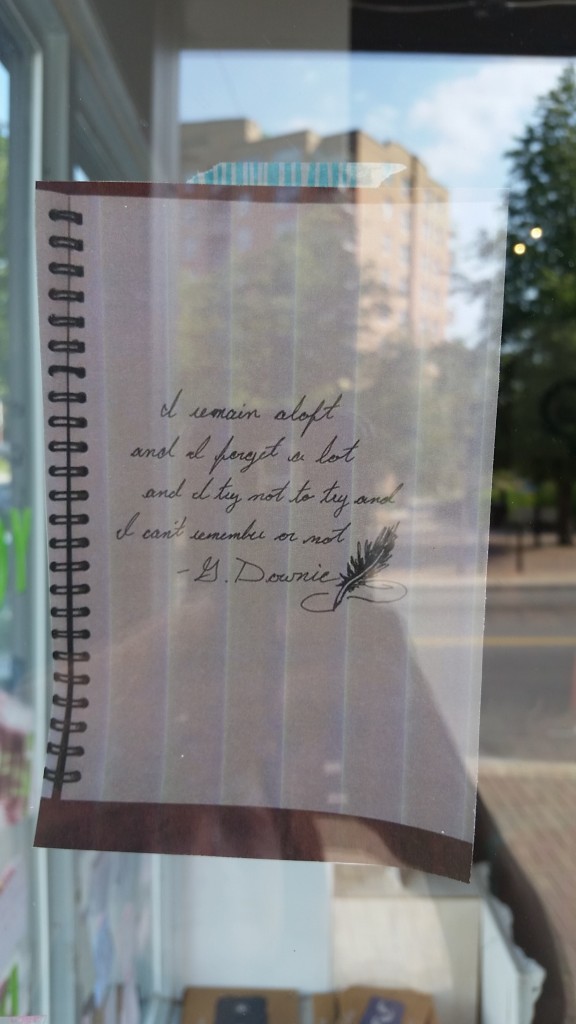 I remain aloft
and I forget a lot
and I try not to try and
I can't remember or not
- G. Downie